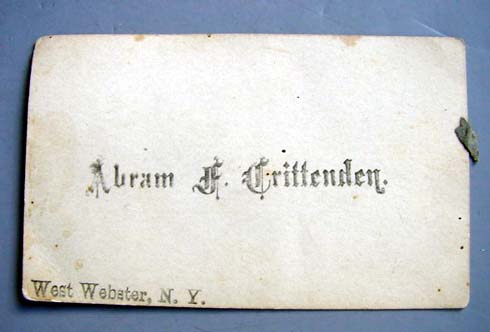 Abram F. Crittenden.
West Webster, N. Y.